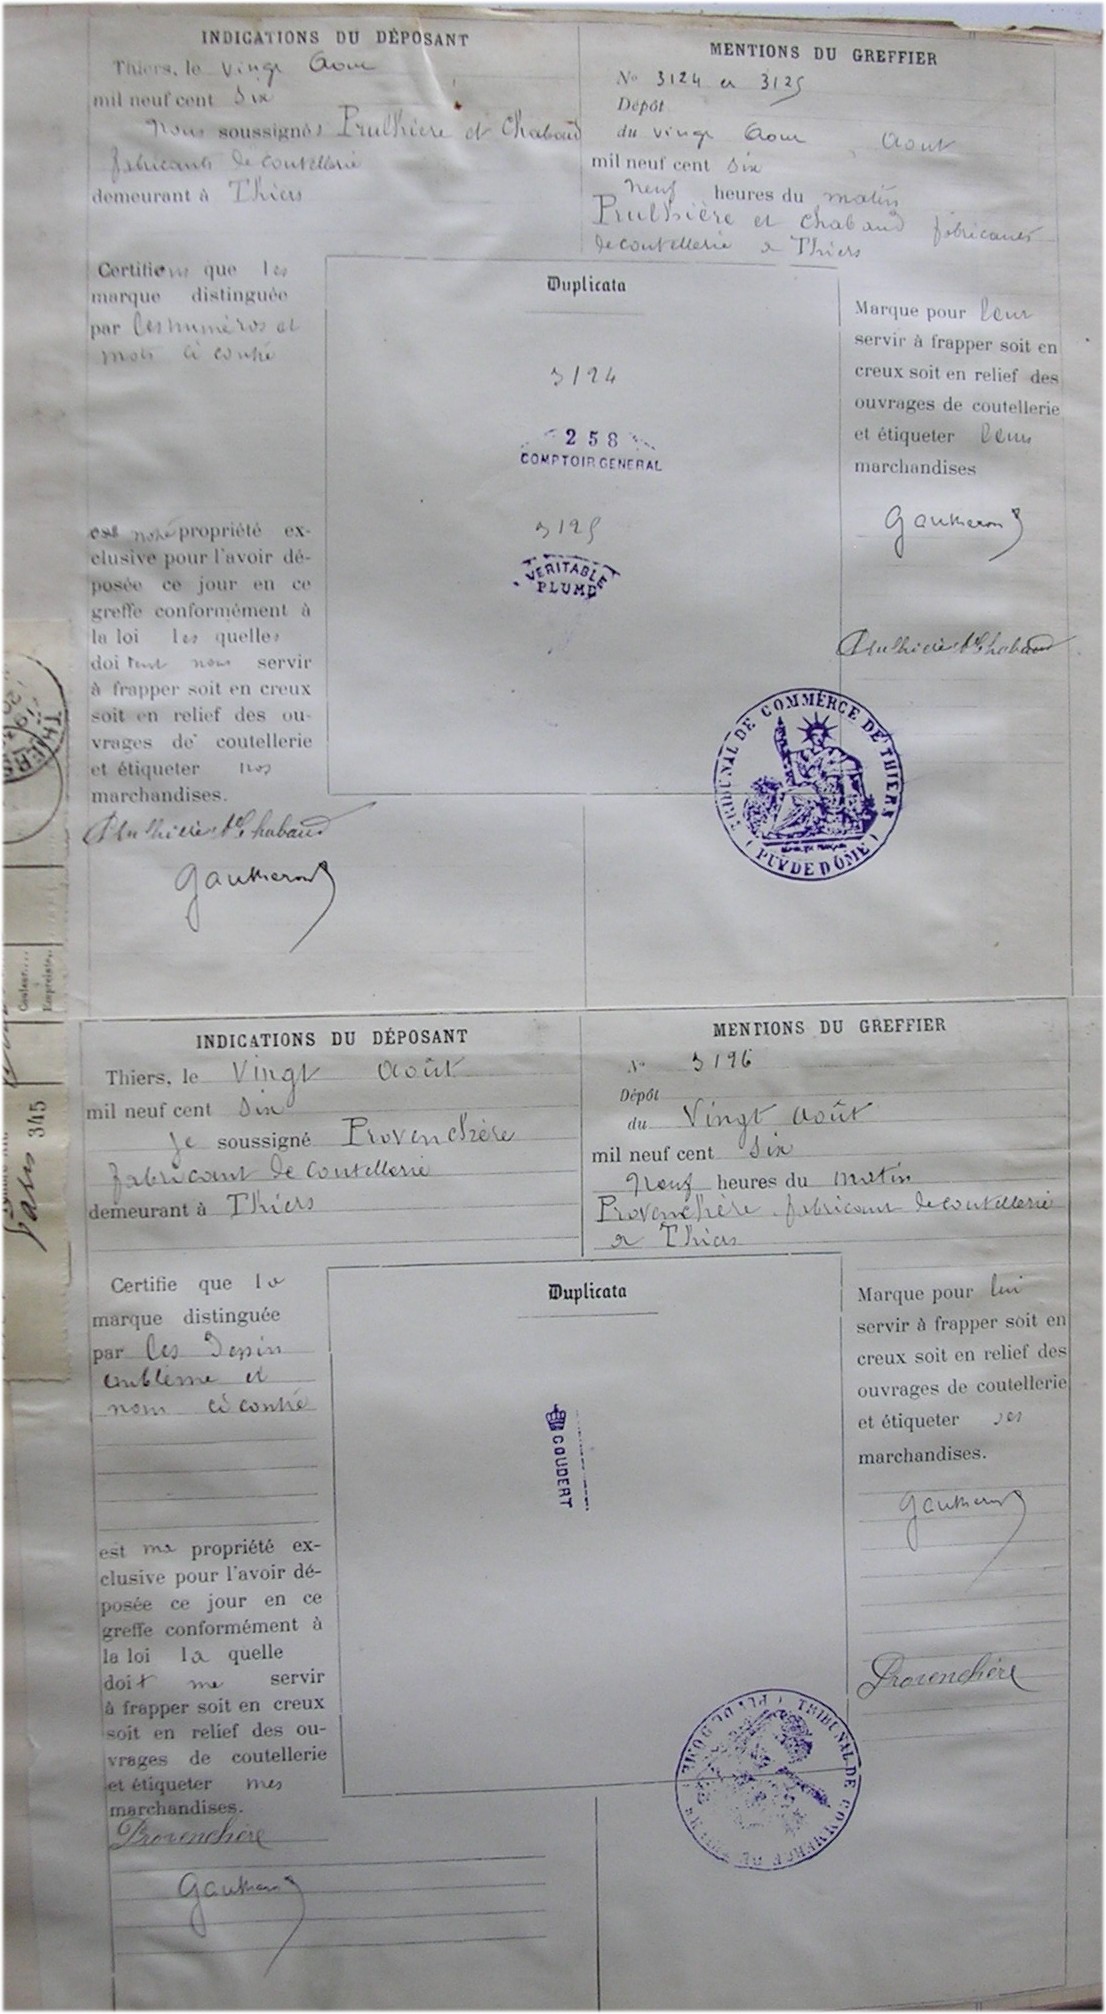 INDICATIONS DU DÉPOSANT
Thiers, le vingt Aout
mil neuf cent Six
Nous soussignés Prulhière et Chabaud
fabricants de coutellerie
demeurant à Thiers
Certifions que les
marque distinguée
par les numéros et
mots ci contre
est notre propriété ex-
clusive pour l'avoir dé-
posée ce jour en ce
greffe conformément à
la loi les quelles
doivent nous servir
à frapper soit en creux
soit en relief des ou-
vrages de coutellerie
et étiqueter nos
marchandises.
Prulhière & Chabaud
MENTIONS DU GREFFIER
No 3124 et 3125
Dépôt
du vingt Aout Aout
mil neuf cent six
Neuf heures du matin
Prulhière et Chabaud fabricants
de coutellerie a Thiers
Duplicata
3124
258
COMPTOIR GENERAL
3125
VERITABLE
PLUME
Marque pour leur
servir à frapper soit en
creux soit en relief des
ouvrages de coutellerie
et étiqueter leurs
marchandises
Prulhière & Chabaud
TRIBUNAL DE COMMERCE DE THIERS
(PUY DE DÔME)
THIERS
Couleur....
Empreinte..
345
INDICATIONS DU DÉPOSANT
Thiers, le Vingt Août
mil neuf cent Six
Je soussigné Provenchère
fabricant de Coutellerie
demeurant à Thiers
Certifie que la
marque distinguée
par les Dessin
emblème et
nom ci contre
est ma propriété ex-
clusive pour l'avoir dé-
posée ce jour en ce
greffe conformément à
la loi la quelle
doit me servir
à frapper soit en creux
soit en relief des ou-
vrages de coutellerie
et étiqueter mes
marchandises.
Provenchère
MENTIONS DU GREFFIER
No 3126
Dépôt
du Vingt Août
mil neuf cent Six
Neuf heures du matin
Provenchère fabricant de coutellerie
a Thiers
Duplicata
COUDERT
Marque pour lui
servir à frapper soit en
creux soit en relief des
ouvrages de coutellerie
et étiqueter ses
marchandises.
Provenchère
TRIBUNAL DE COMMERCE DE THIERS
(PUY DE DÔME)